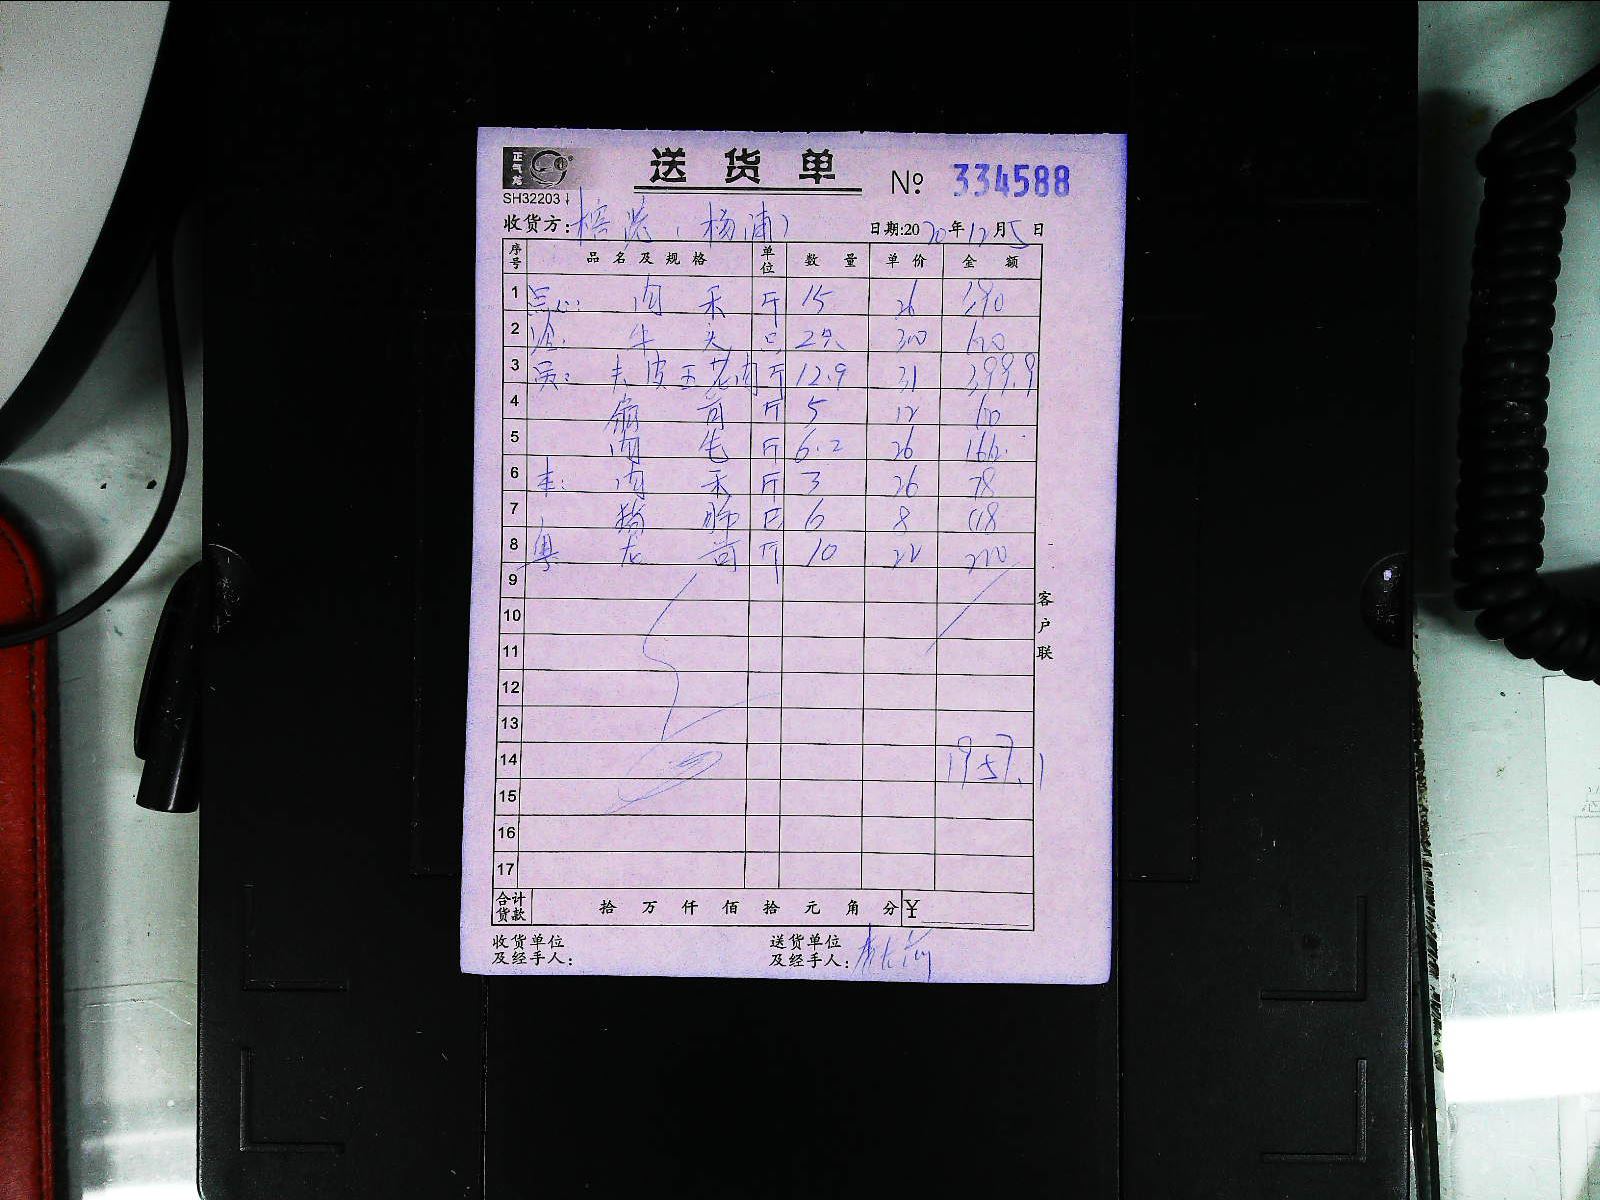 正气龙
送货单 № 334588
SH32203
收货方: 榕港(杨浦) 日期:2020年12月5日
序号 品名及规格 单位 数量 单价 金额
1 点心: 肉 斤 15 26 390
2 牛 只 2只 300 600
3 夹皮五花肉 斤 12.9 31 399.9
4 斤 5 12 60
5 肉 斤 6.2 26
6 肉 斤 3 26 78
7 猪 只 6 8
8 粤 龙 斤 10 22 220
9
10
11
12
13
14 1957.1
15
16
17
合计货款 拾 万 仟 佰 拾 元 角 分 ¥
收货单位及经手人: 送货单位及经手人:
客户联